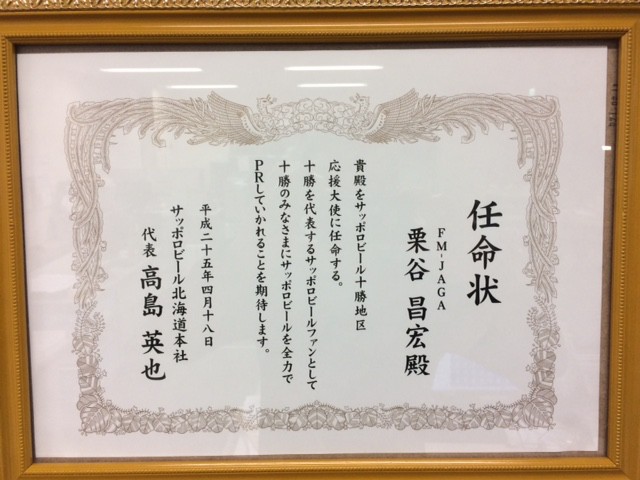 任命状
FM-JAGA
栗谷 昌宏殿
貴殿をサッポロビール十勝地区
応援大使に任命する。
十勝を代表するサッポロビールファンとして
十勝のみなさまにサッポロビールを全力で
PRしていかれることを期待します。
平成二十五年四月十八日
サッポロビール北海道本社
代表 高島 英也